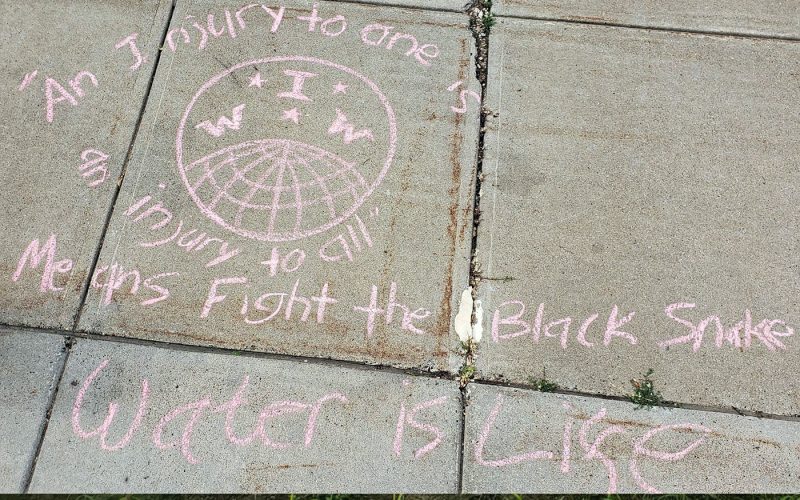 "An Injury to one is
IWW
an injury to all"
Means Fight the Black Snake
Water is Life